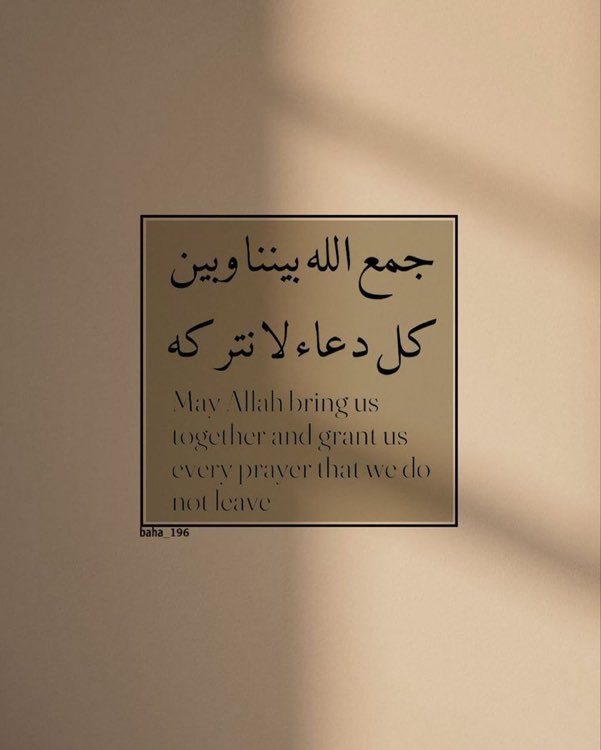 جمع الله بيننا وبين
كل دعاء لا نتركه
May Allah bring us
together and grant us
every prayer that we do
not leave
baha_196